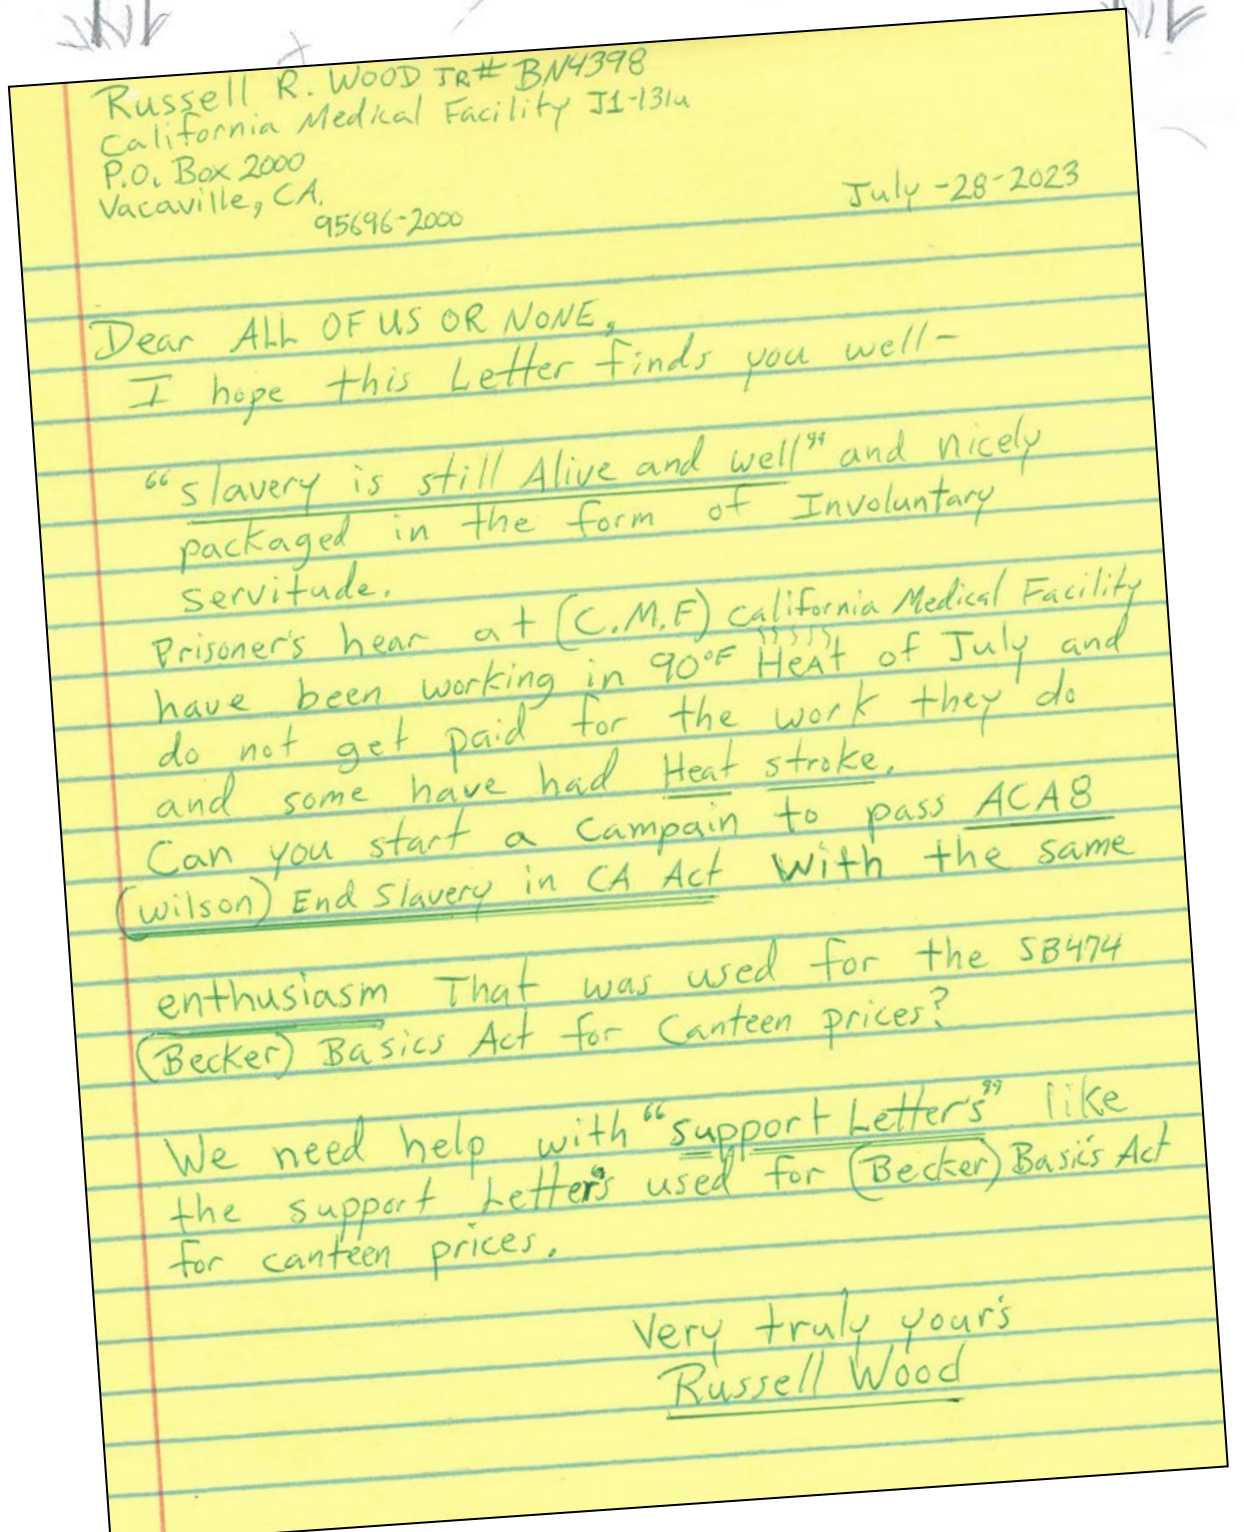 Russell R. WOOD JR# BN4398
California Medical Facility J1-131u
P.O. Box 2000
Vacaville, CA.
95696-2000
July-28-2023
Dear ALL OF US OR NONE,
I hope this Letter finds you well-
"slavery is still Alive and well" and nicely
packaged in the form of Involuntary
servitude.
Prisoner's hear at (C.M.F) California Medical Facility
have been working in 90°F Heat of July and
do not get paid for the work they do
and some have had Heat stroke.
Can you start a Campain to pass ACA8
(Wilson) End Slavery in CA Act With the same
enthusiasm That was used for the SB474
(Becker) Basics Act for Canteen prices?
We need help with "support Letter's" like
the support Letter's used for (Becker) Basic's Act
for canteen prices.
Very truly your's
Russell Wood